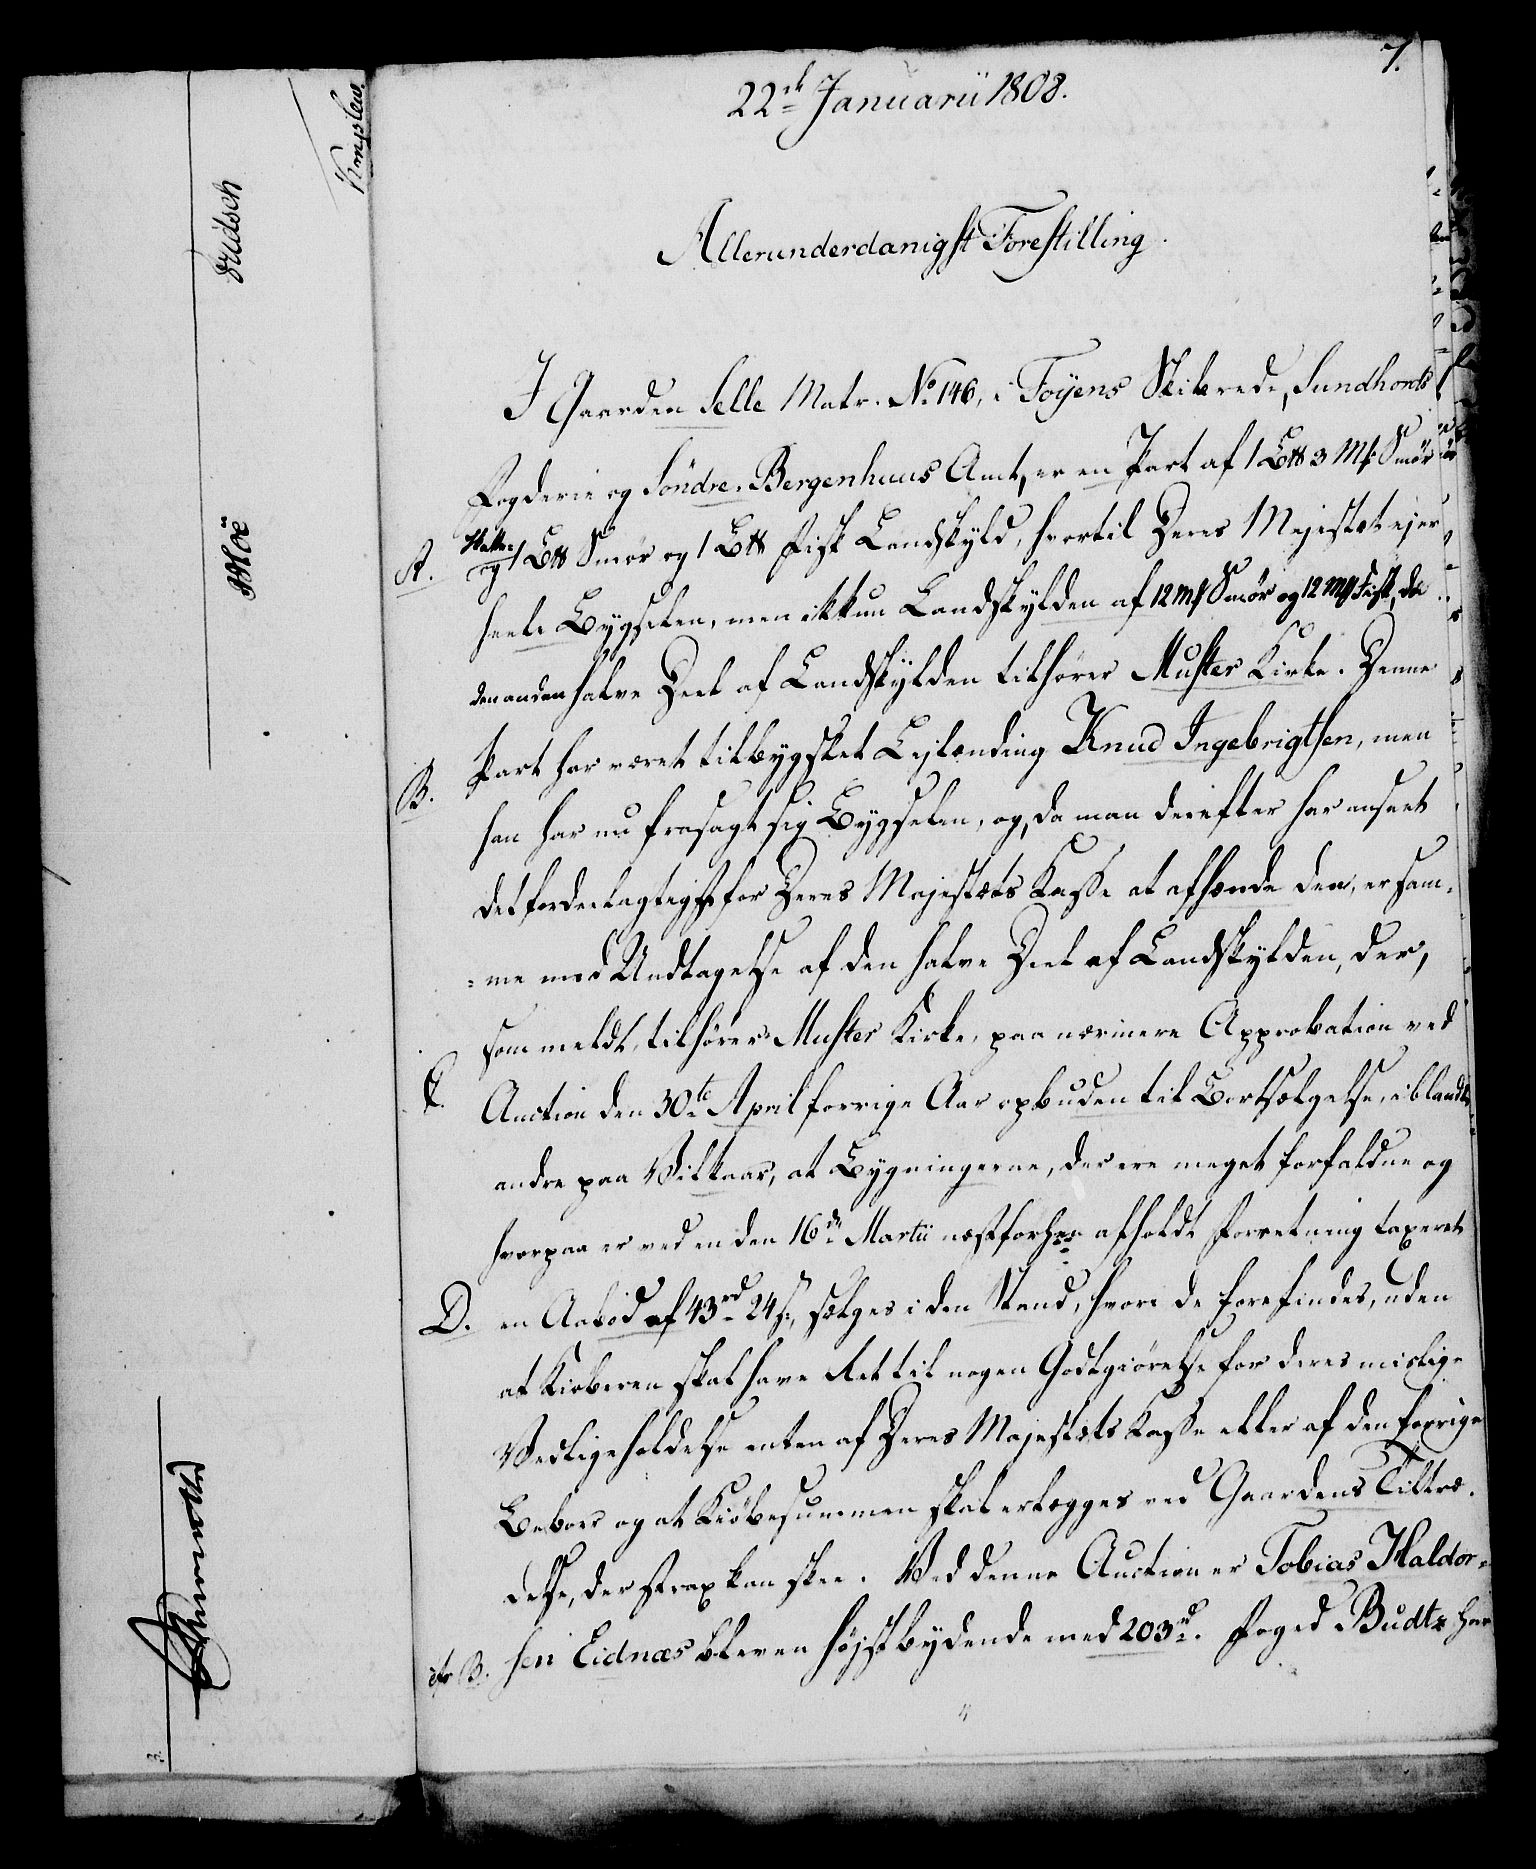 7.
22de Januarii 1808.
Allerunderdanigst Forestilling.
I Gaarden Selle Matr. No 146, i Foÿens Skibrede, Sundhords
Fogderie og Söndre-Bergenhuus Amt, er en Part af 1 Løb 3 Mk Smør
A. og 1 Løb Smør og 1 Løb Fisk Landskyld, hvortil Deres Majestæt ejer
heele Bygselen, men ikkun Landskylden af 12 Mk Smör og 12 Mk Fisk, da
den anden halve Deel af Landskylden tilhører Muster Kirke. Denne
B. Part har været tilbygslet Lejlænding Knud Ingebrigtsen, men
han har nu frasagt sig Bygselen, og, da man derefter har anseet
det fordeelagtigst for Deres Majestæts Kasse at afhænde den, er sam-
-me med Undtagelse af den halve Deel af Landskylden, der,
som meldt, tilhører Muster Kirke, paa nærmere Approbation ved
C. Auction den 30te April forrige Aar opbuden til Bortsælgelse, iblandt
andre paa Vilkaar, at Bygningerne, der ere meget forfaldne og
hvorpaa er ved en den 16de Martii næstforhen afholdt Forretning taxeret
D. en Aabod af 43rd 24s, sælges i den Stand, hvori de forefindes, uden
at Kiøberen skal have Ret til nogen Godtgiörelse for deres mislige
Vedligeholdelse enten af Deres Majestæts Kasse eller af den forrige
Beboer og at Kiöbesummen skal erlægges ved Gaardens Tiltræ-
delse, der strax kan skee. Ved denne Auction er Tobias Haldor-
cfr B. sen Eidnæs bleven højstbydende med 203rd. Foged Budtz har
Moe
3.